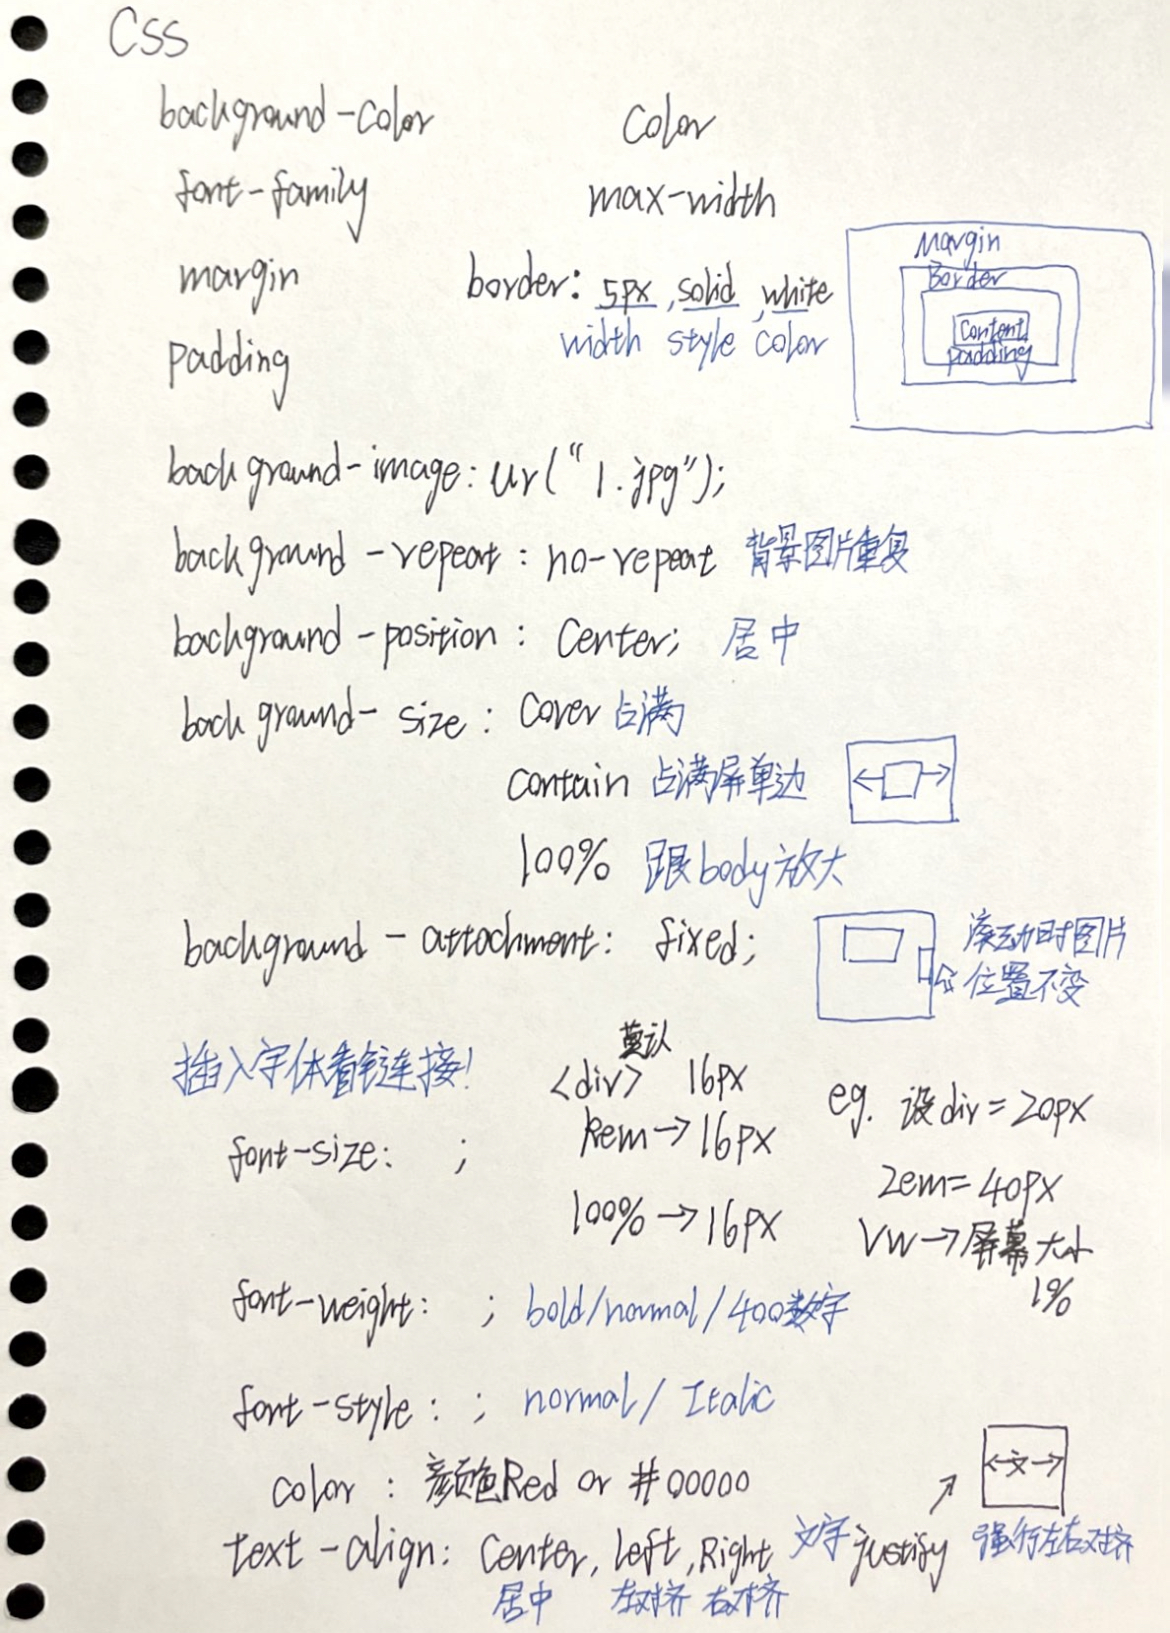 CSS
background-color color
font-family max-width
margin border: 5px, solid, white
width style color
padding
Margin
Border
Content
padding
background-image: ur("1.jpg");
background-repeat: no-repeat 背景图片重复
background-position: Center; 居中
background-size: Cover 占满
contain 占满屏单边
100% 跟body放大
background-attachment: fixed; 滚动时图片
位置不变
插入字体看链连接!
默认
<div> 16px
font-size: ; Rem→16px
100%→16px
eg. 设div=20px
2em=40px
VW→屏幕大小
1%
font-weight: ; bold/normal/400数字
font-style: ; normal/Italic
color: 颜色Red or #00000
text-align: Center, left, Right 文字 justify 强行左右对齐
居中 左对齐 右对齐
←文→